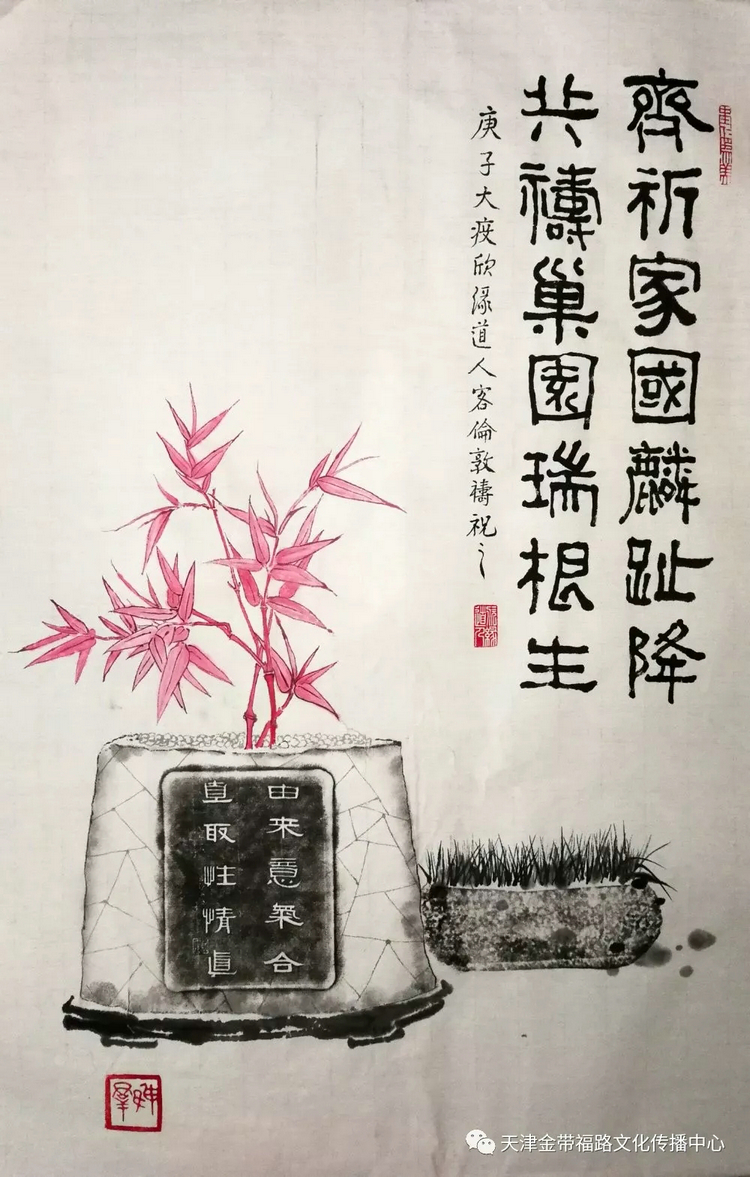 齊祈家國麟趾降
共禱巢園瑞根生
庚子大疫欣缘道人客倫敦禱祝之
由来意氣合
直取性情真
天津金带福路文化传播中心